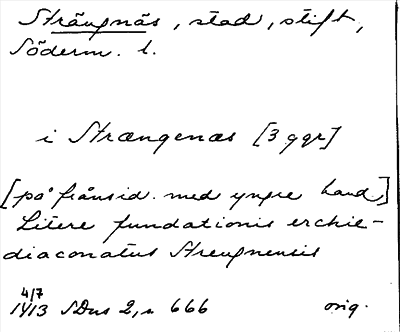 Strängnäs, stad, stift,
Söderm. l.
i Strængenæs [3 ggr]
[på frånsid. med yngre hand]
Litere fundationis erchie-
diaconatus Strengnensis
4/7
1413 SDns 2, s 666 orig.